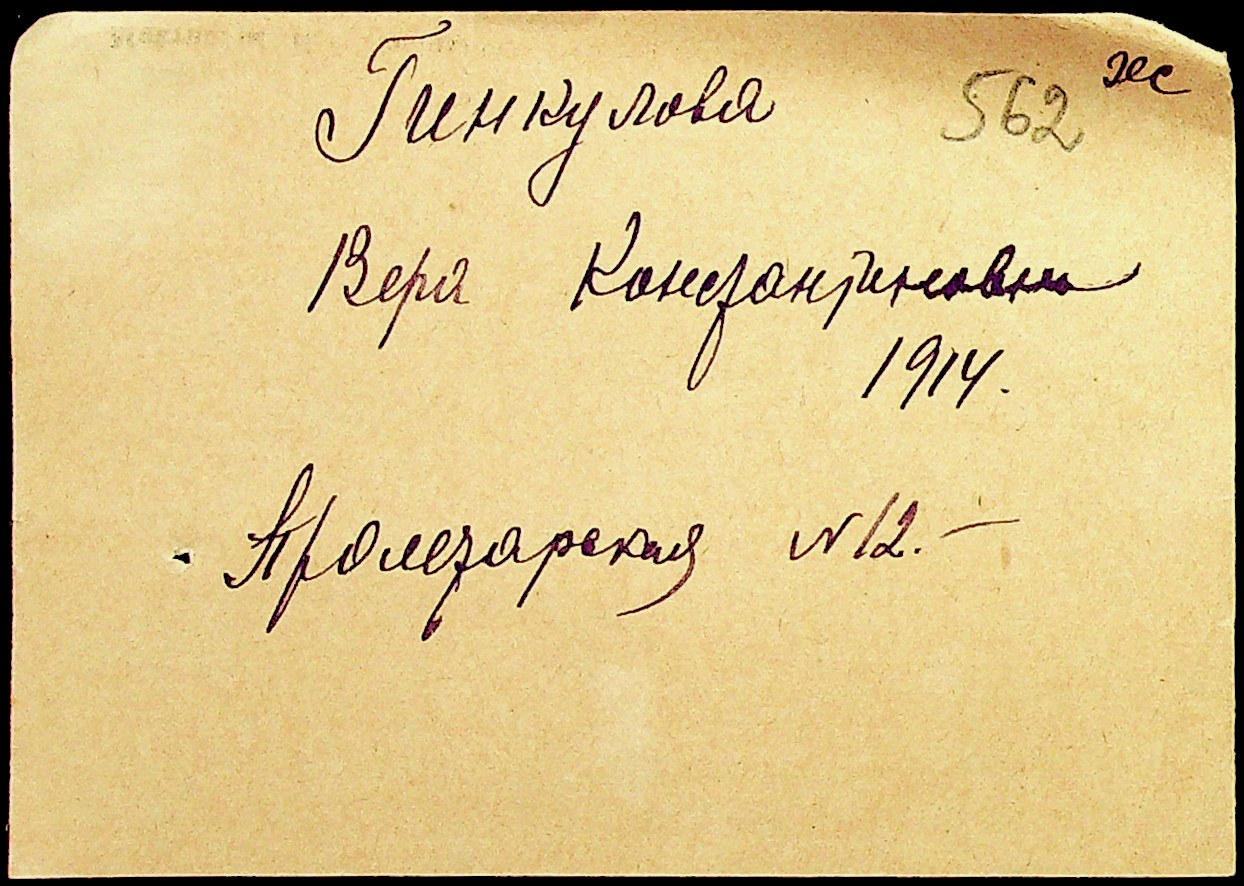 Гинкулова 562 же
Вера Константиновна
1914.
Пролетарская № 12.-